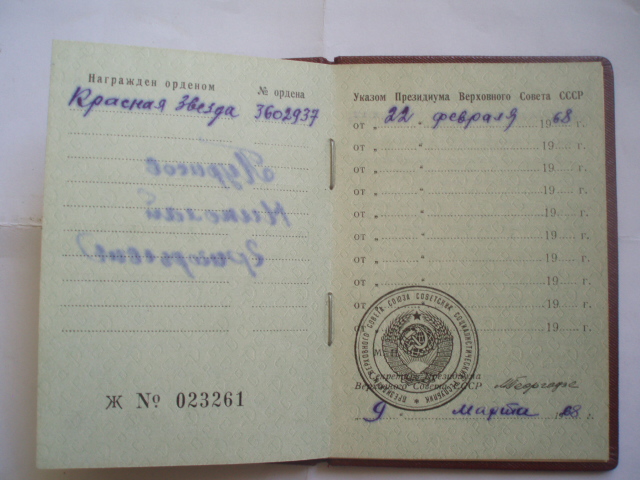 Награжден орденом
№ ордена
Красная Звезда 3602937
Ж № 023261
Указом Президиума Верховного Совета СССР
от „ 22 “ февраля 1968 г.
от „ “ 19 г.
от „ “ 19 г.
от „ “ 19 г.
от „ “ 19 г.
от „ “ 19 г.
от „ “ 19 г.
от „ “ 19 г.
от „ “ 19 г.
от 19 г.
М.П.
Секретарь Президиума
Верховного Совета СССР
9 марта 1968 г.